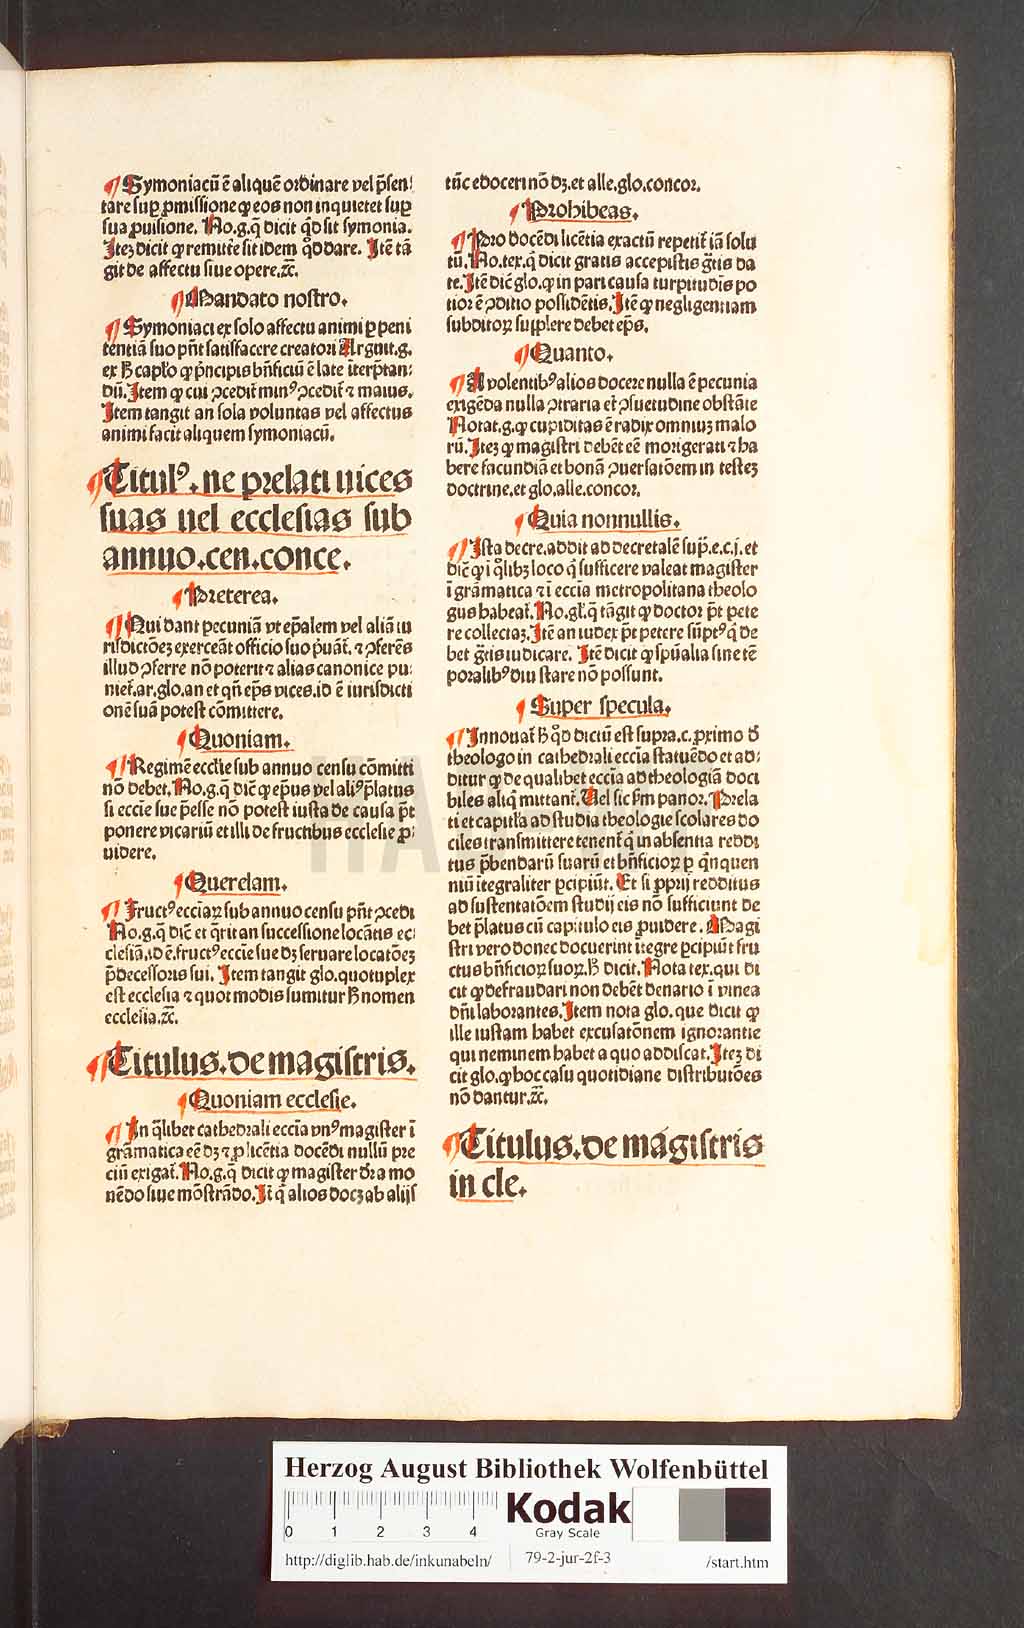 ¶ Symoniacū ē aliquē ordinare vel p̄sen/
tare suꝑ ꝓmissione ꝙ eos non inquietet suꝑ
sua ꝓuisione. No.g.q̄ dicit qd̄ sit symonia.
Itez dicit ꝙ remitte͛ sit idem qd̄ dare. Itē tā
git de affectu siue opere.⁊c̄.
¶ Mandato nostro.
¶ Symoniaci ex solo affectu animi ꝑ peni
tentiā suo pn̄t satisfacere creatori Arguit.g.
ex ħ caplo ꝙ pn̄cipis bn̄ficiū ē late iterp̄tan/
dū. Item ꝙ cui ꝯcedit͛ minꝰ ꝯcedit͛ ⁊ maius.
Item tangit an sola voluntas vel affectus
animi facit aliquem symoniacū.
¶ Titulꝰ. ne prelati uices
suas uel ecclesias sub
annuo.cen.conce.
¶ Preterea.
¶ Qui dant pecuniā vt ep̄alem vel aliā iu
risdictōez exerceāt officio suo p̄uāt͛. ⁊ ꝯferēs
illud ꝯferre nō poterit ⁊ alias canonice pu/
niet͛.ar.glo.an et qn̄ ep̄s vices.id ē iurisdicti
onē suā potest cōmittere.
¶ Quoniam.
¶ Regimē eccl̄ie sub annuo censu cōmitti
nō debet. No.g.q̄ dic̄ ꝙ ep̄us vel aliꝰ p̄latus
si eccīe sue p̄esse nō potest iusta de causa p̄t
ponere vicariū et illi de fructibus ecclesie ꝓ/
uidere.
¶ Querelam.
¶ Fructꝰ ecciaꝝ sub annuo censu pn̄t ꝯcedi
No.g.q̄ dic̄ et q̄rit an successione locātis ec/
clesiā.id ē.fructꝰ eccīe sue dꝫ seruare locatōez
p̄decessoris sui. Item tangit glo.quotuplex
est ecclesia ⁊ quot modis sumitur ħ nomen
ecclesia.⁊c̄.
¶ Titulus.de magistris.
¶ Quoniam ecclesie.
¶ In q̄libet cathedrali eccīa vnꝰ magister ī
grāmatica eē dꝫ ⁊ ꝓ licētia docēdi nullū pre
ciū exigat͛. No.g.q̄ dicit ꝙ magister dr̄ a mo
nēdo siue mōstrādo. It q̄ alios docꝫ ab alijs
tūc edoceri nō dꝫ.et alle.glo.concor.
¶ Prohibeas.
¶ Pro docēdi licētia exactū repetit͛ iā solu
tū. No.tex.q̄ dicit gratis accepistis gr̄tis da
te. Itē dic̄ glo.ꝙ in pari causa turpitudīs po
tior ē ꝯditio possidētis. Itē ꝙ negligentiam
subditoꝝ supplere debet ep̄s.
¶ Quanto.
¶ A volentibꝰ alios docere nulla ē pecunia
exigēda nulla ꝯtraria et͛ ꝯsuetudine obstāte
Notat.g.ꝙ cupiditas ē radix omniuꝫ malo
rū. Itez ꝙ magistri debēt eē morigerati ⁊ ha
bere facundiā et bonā ꝯuersatōem in testez
doctrine.et glo.alle.concor.
¶ Quia nonnullis.
¶ Ista decre.addit ad decretalē sup̄.e.c.j.et
dic̄ ꝙ ī q̄libꝫ loco q̄ sufficere valeat magister
ī grāmatica ⁊ ī eccīa metropolitana theolo
gus habeat͛. No.gl.q̄ tāgit ꝙ doctor p̄t pete
re collectaꝫ. Itē an iudex p̄t petere sūptꝰ q̄ de
bet gr̄tis iudicare. Itē dicit ꝙ spūalia sine tē
poralibꝰ diu stare nō possunt.
¶ Super specula.
¶ Innouat͛ ħ qd̄ dictū est supra.c.ꝓximo d̄
theologo in cathedrali eccīa statuēdo et ad/
ditur ꝙ de qualibet eccīa ad theologiā doci
biles aliq̄ mittant͛. Uel sic fm̄ panor. Prela
ti et capitl̄a ad studia theologie scolares do
ciles transmittere tenent͛ q̄ in absentia reddi
tus p̄bendarū suarū et bn̄ficioꝝ ꝑ q̄nquen
niū ītegraliter ꝑcipiūt. Et si ꝓprij redditus
ad sustentatōem studij eis nō sufficiunt de
bet p̄latus cū capitulo eis ꝓuidere. Magi
stri vero donec docuerint ītegre ꝑcipiūt fru
ctus bn̄ficioꝝ suoꝝ.ħ dicit. Nota tex.qui di
cit ꝙ defraudari non debēt denario ī vinea
dn̄i laborantes. Item nota glo.que dicit ꝙ
ille iustam habet excusatōnem ignorantie
qui neminem habet a quo addiscat. Itez di
cit glo.ꝙ hoc casu quotidiane distributōes
nō dantur.⁊c̄.
¶ Titulus.de magistris
in cle.
HAB
Herzog August Bibliothek Wolfenbüttel
0 1 2 3 4
Kodak
Gray Scale
http://diglib.hab.de/inkunabeln/
79-2-jur-2f-3
/start.htm